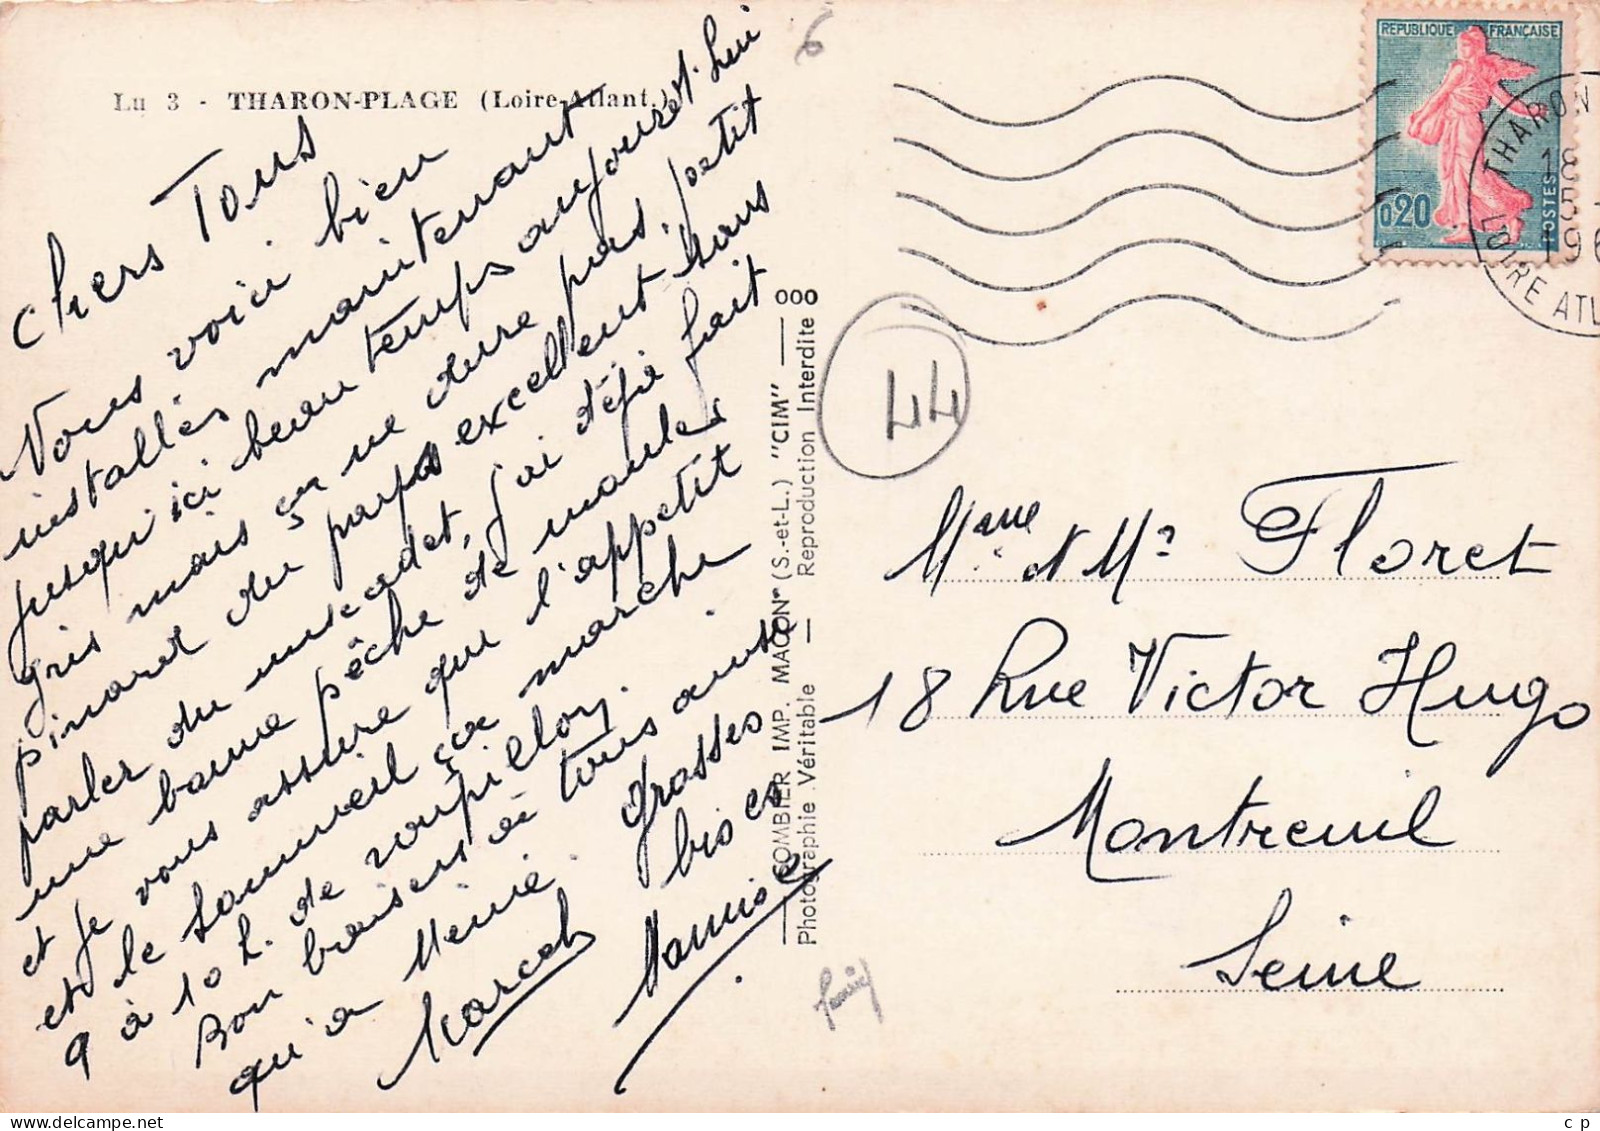 Lu 3 - THARON-PLAGE (Loire-Atlant.)
Chers Tous
Nous voici bien
installés maintenant
jusqu'ici beau temps aujourd'hui
gris mais ça ne dure pas, petit
pinard du pays excellent sans
parler du muscadet, j'ai déjà fait
une bonne pêche de moules
et je vous assure que l'appetit
et le sommeil ça marche
9 à 10 h. de roupillon.
Bon baisers à tous ainsi
qu'à Mémé. Grosses
bises
Marcel
000
COMBIER IMP. MACON (S.-et-L.) "CIM"
Photographie Véritable — Reproduction Interdite
6
44
REPUBLIQUE FRANÇAISE
0,20
POSTES
THARON
18
5 -
196
LOIRE ATL
Mme et Mr Floret
18 Rue Victor Hugo
Montreuil
Seine
c p